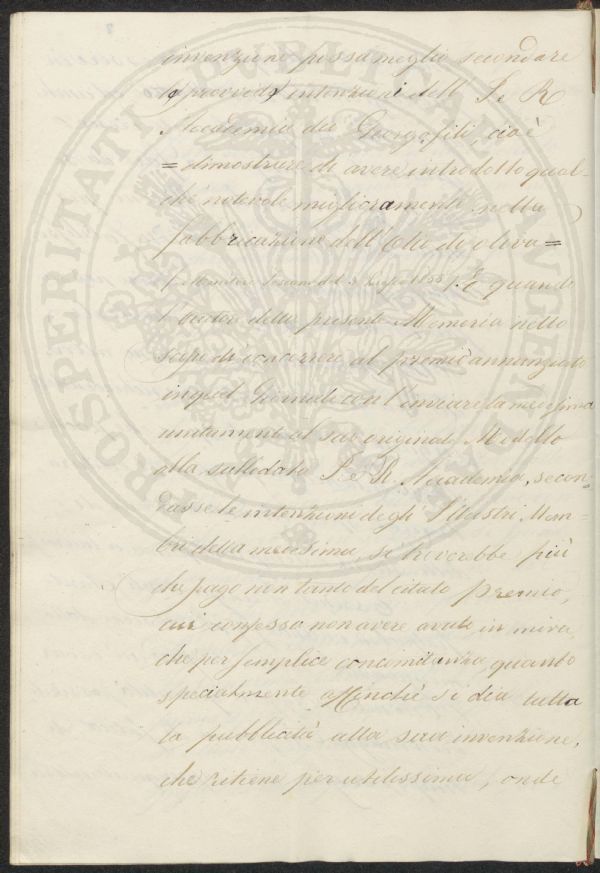 invenzione possa meglio secondare
le provvede intenzioni dell' I. e R.
Accademia dei Georgofili, cioè
= dimostrare di avere introdotto qual-
che notevole miglioramento nella
fabbricazione dell' Olio di oliva =
(Monitore Toscano del 3 1855). E quando
l'autore della presente Memoria nello
di concorrere al premio annunziato
in quel Giornale con l'inviare la medesima
unitamente al suo original Modello
alla sullodata I. e R. Accademia, secon-
dasse le intenzioni degl' Illustri Mem-
bri della medesima, si troverebbe più
che pago non tanto del citato premio,
cui confessa non avere avuto in mira,
che per semplice concomitanza quanto
specialmente affinchè si dia tutta
la pubblicità alla sua invenzione,
che ritiene per utilissima, onde
PROSPERITATI PUBLICAE AUGENDAE